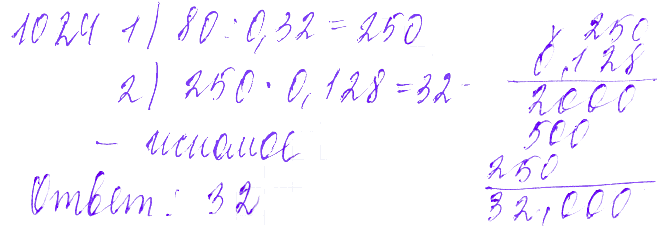 1024 1) 80 : 0,32 = 250
2) 250 · 0,128 = 32 -
- искомое
Ответ: 32
× 250
0,128
2000
500
250
32,000